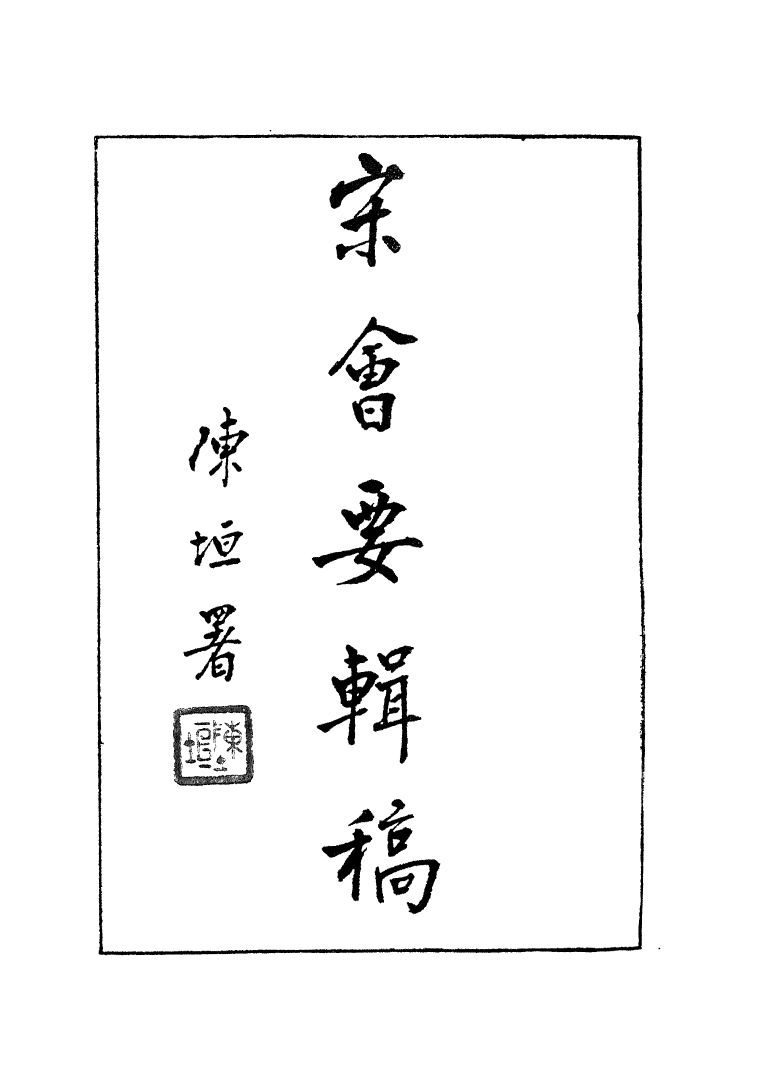 宋會要輯稿
陳垣署
陳垣